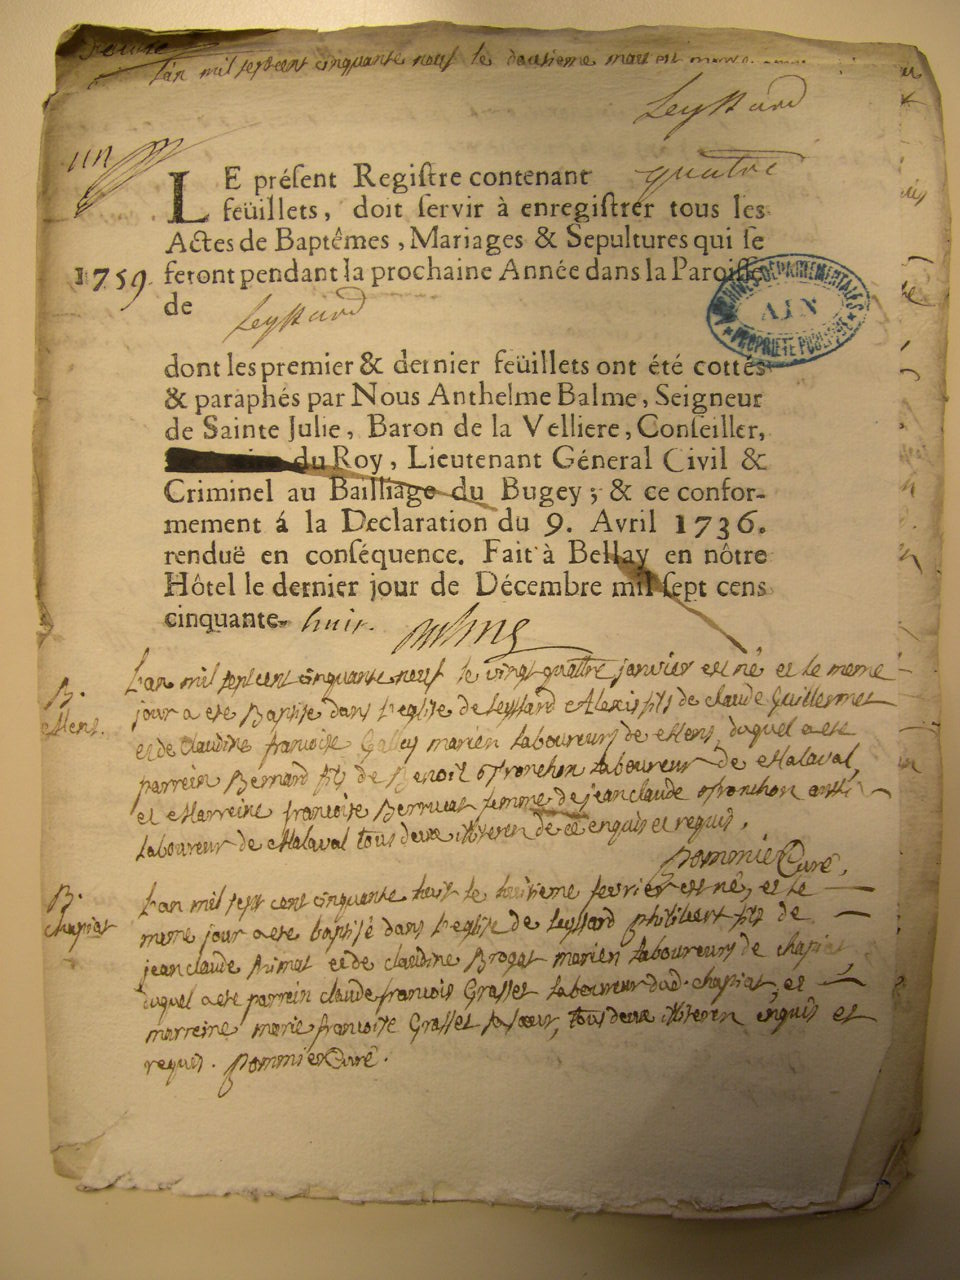 L'an mil sept cent cinquante neuf le
Leyssard
un
LE préſent Regiſtre contenant quatre
feüillets, doit ſervir à enregiſtrer tous les
Actes de Baptêmes, Mariages & Sepultures qui ſe
1759. feront pendant la prochaine Année dans la Paroiſſe
de Leyssard
ARCHIVES DEPARTEMENTALES
AIN
PROPRIETE PUBLIQUE
dont les premier & dernier feüillets ont été cottés
& paraphés par Nous Anthelme Balme, Seigneur
de Sainte Julie, Baron de la Velliere, Conſeiller,
du Roy, Lieutenant Géneral Civil &
Criminel au Bailliage du Bugey; & ce confor-
mement á la Declaration du 9. Avril 1736.
renduë en conſéquence. Fait à Bellay en nôtre
Hôtel le dernier jour de Décembre mil ſept cens
cinquante- huit.
B. L'an mil sept cent cinquante neuf le vingt quattre janvier est né et le meme
jour a ete Baptise dans l'eglise de Leyssard Alexis fils de claude Guillermet
et de Claudine francoise Galley mariés Laboureurs de Mens, duquel a ete
parrein Bernard fils de Benoit Laboureur de Malaval,
et Marreine francoise femme de jean claude aussi
Laboureur de Malaval tous deux illiteren de ce enquis et requis.
Pommier Curé.
B. L'an mil sept cent cinquante le fevrier est né, et le
chapiat meme jour a ete baptisé dans l'eglise de Leyssard philibert fils de
jean claude et de claudine mariés Laboureurs de chapiat,
duquel a ete parrein claude francois Grasset Laboureur dud. chapiat, et
marreine marie francoise Grasset sa soeur, tous deux illiteren enquis et
requis. Pommier Curé.